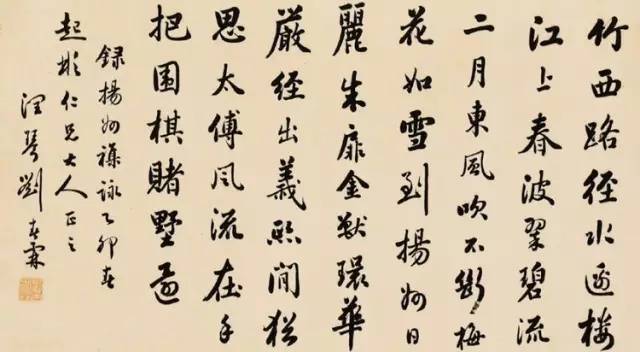 竹西路徑水邊楼
江上春波翠碧流
二月東風吹不斷梅
花如雪到揚州日
麗朱扉金獸環華
嚴経出義熙間猶
思太傅風流在手
把围棋賭墅還
録揚州襍詠乙卯春
起彬仁兄大人正之
潤琴劉春霖